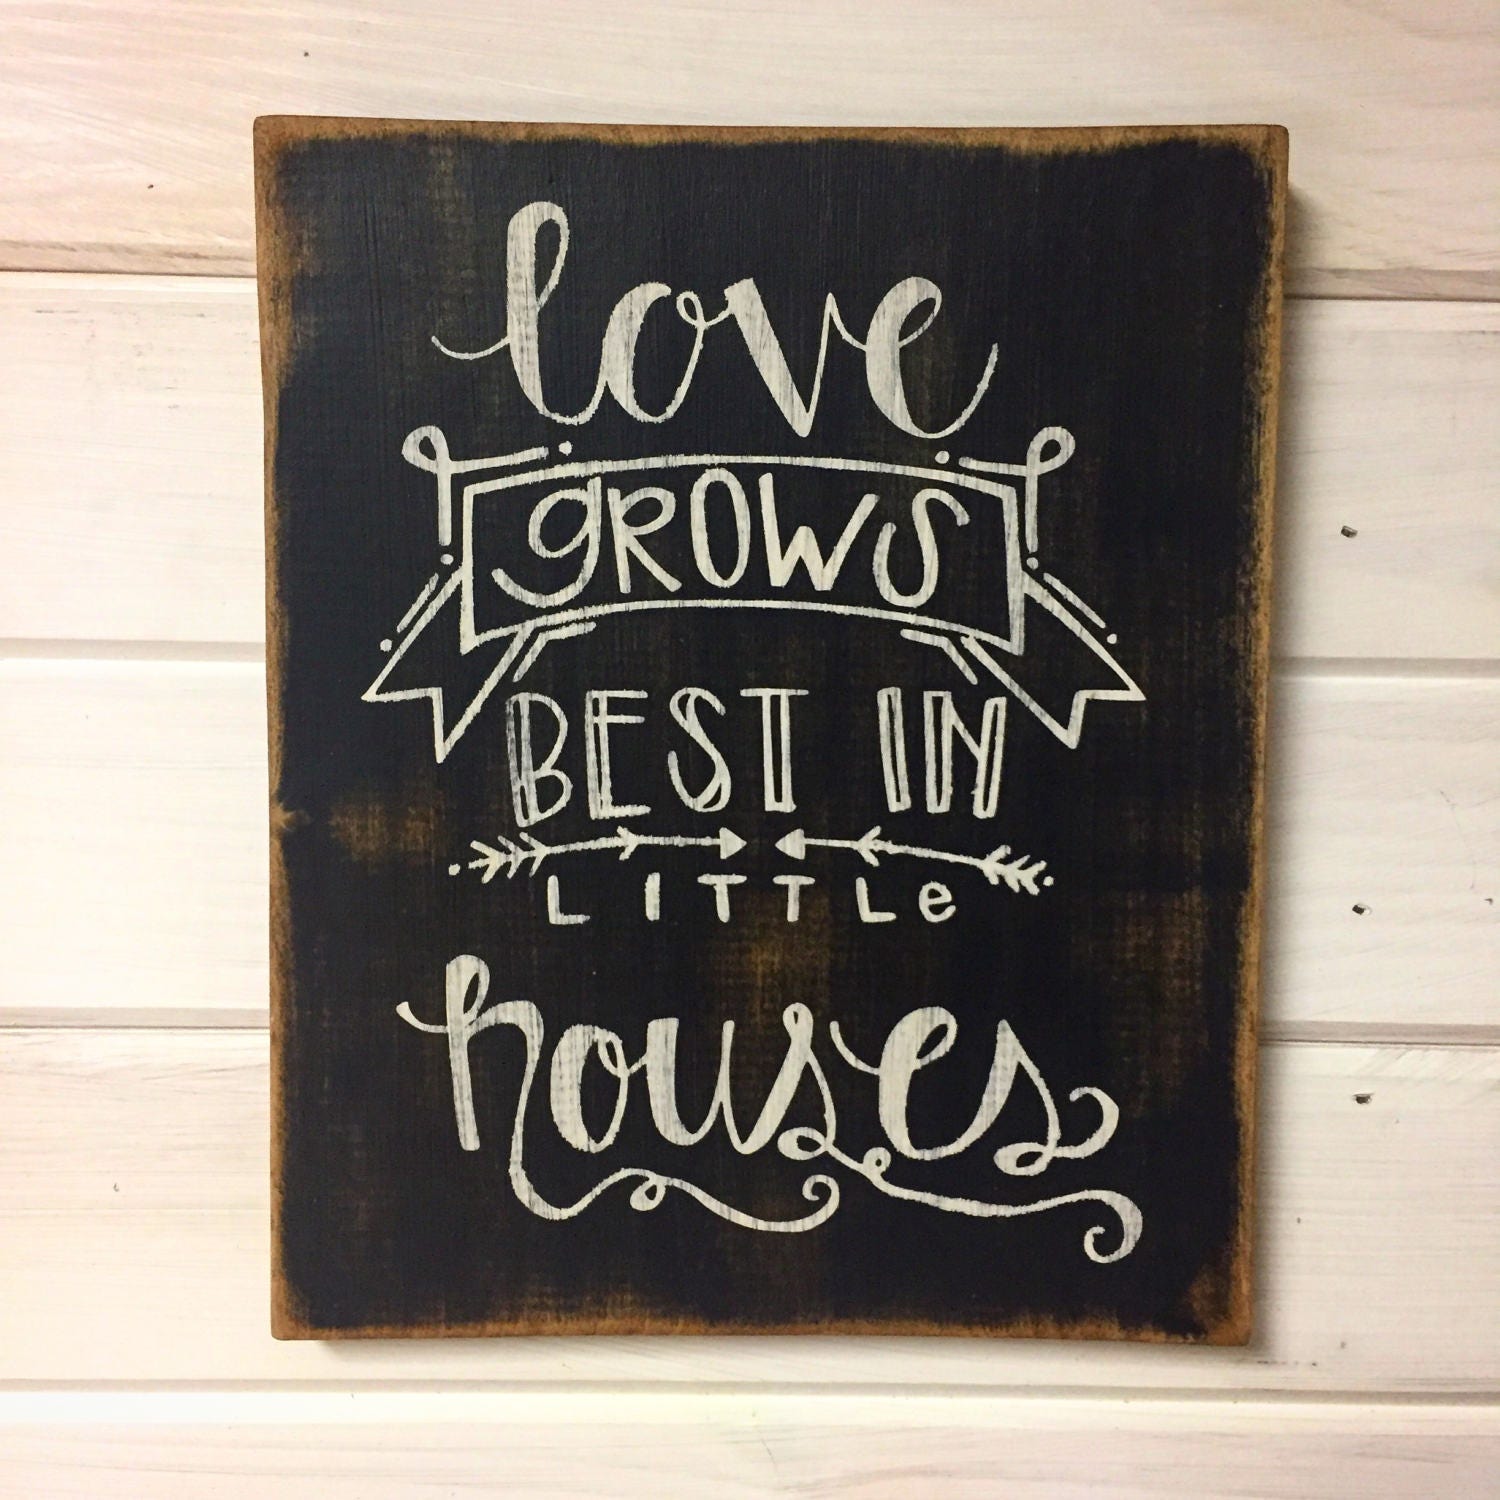 love
gROWS
BEST IN
LITTLe
houses